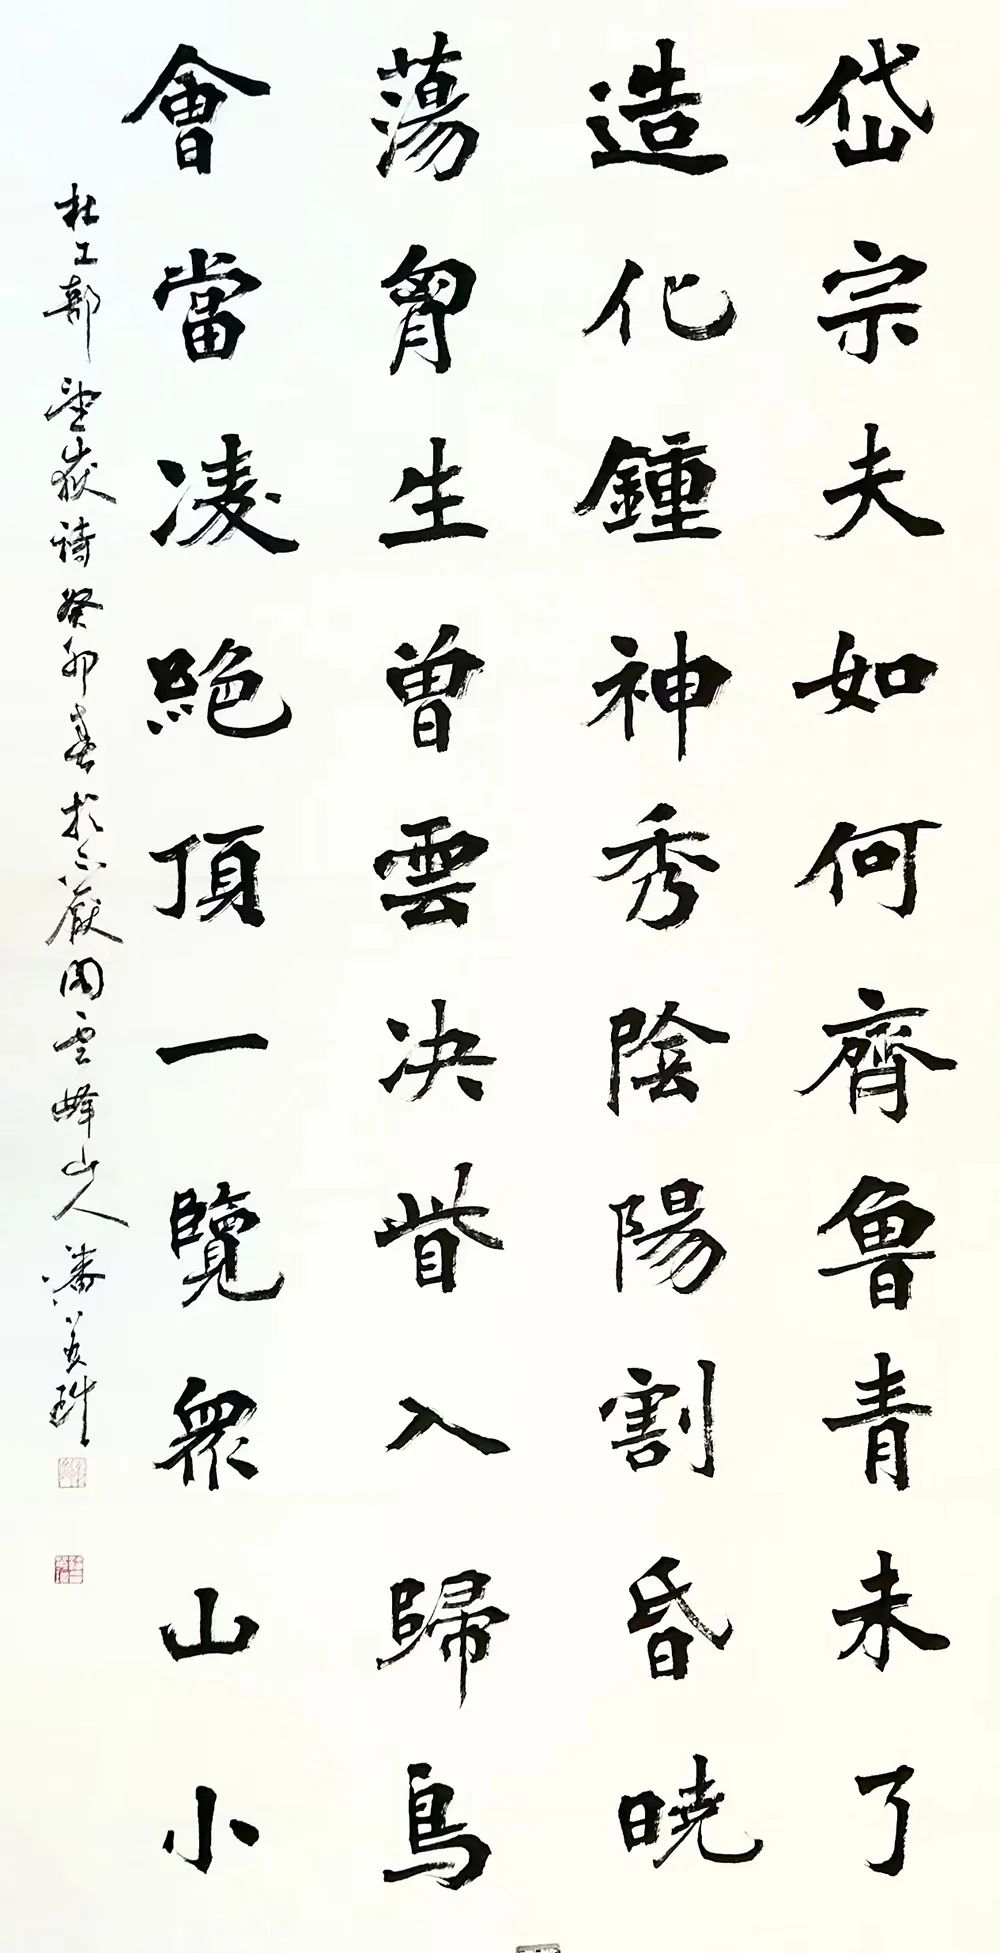 岱宗夫如何齊魯青未了
造化鍾神秀陰陽割昏曉
蕩胷生曽雲决眥入歸鳥
會當凌絕頂一覽眾山小
杜工部望嶽詩癸卯春於不厭閣雲峰山人潘美珠